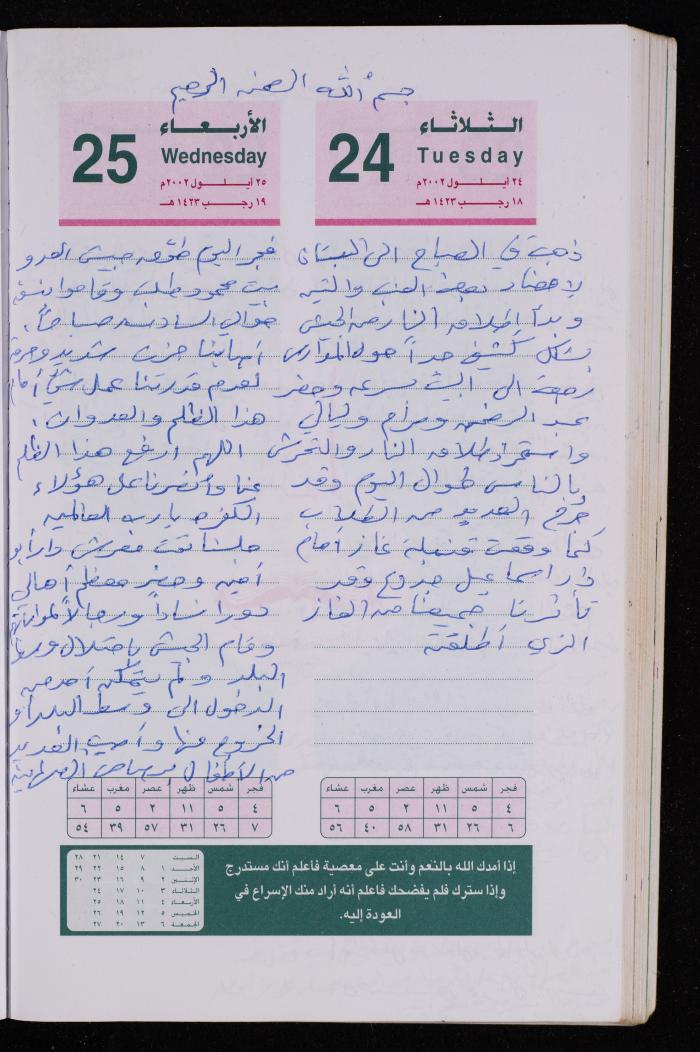 بسم الله الرحمن الرحيم
الثلاثاء
24
Tuesday
٢٤ أيلول ٢٠٠٢م
١٨ رجب ١٤٢٣هـ
ذهبت في الصباح الى البستان
لاحضار بعض العنب والتين
وبدأ اطلاق النار من الجيش
بشكل كثيف جداً حول المدارس
رجعت الى البيت بسرعه وحضر
عبد الرحمن ومرام وليالي
واستمر اطلاق النار والتحرش
بالناس طوال اليوم وقد
جرح العديد من الطلاب
كما وقعت قنبلة غاز أمام
دار اسماعيل جدوع وقد
تأثرنا جميعنا من الغاز
الذي أطلقته
الأربعاء
25
Wednesday
٢٥ أيلول ٢٠٠٢م
١٩ رجب ١٤٢٣هـ
فجر اليوم طوق جيش العدو
بيت محمود طلب وقاموا بنسفه
حوالي السادسه صباحاً.
أصابنا حزن شديد وحرقة
لعدم قدرتنا عمل شيء أمام
هذا الظلم والعدوان.
اللهم ارفع هذا الظلم
عنا وانصرنا على هؤلاء
الكفره يا رب العالمين
جلسنا تحت معرش دار أبو
أمين وحضر معظم أهالي
دورا نساءاً ورجالاً
وقام الجيش باحتلال
البلد ولم يتمكن أحد من
الدخول الى وسط البلد أو
الخروج منها وأصيب العديد
من الأطفال برصاص
فجر شمس ظهر عصر مغرب عشاء
٤ ٥ ١١ ٢ ٥ ٦
٦ ٢٦ ٣١ ٥٨ ٤٠ ٥٦
فجر شمس ظهر عصر مغرب عشاء
٤ ٥ ١١ ٢ ٥ ٦
٧ ٢٦ ٣١ ٥٧ ٣٩ ٥٤
إذا أمدك الله بالنعم وأنت على معصية فأعلم أنك مستدرج
وإذا سترك فلم يفضحك فاعلم أنه أراد منك الإسراع في
العودة إليه.
السبت ٧ ١٤ ٢١ ٢٨
الأحد ١ ٨ ١٥ ٢٢ ٢٩
الإثنين ٢ ٩ ١٦ ٢٣ ٣٠
الثلاثاء ٣ ١٠ ١٧ ٢٤
الأربعاء ٤ ١١ ١٨ ٢٥
الخميس ٥ ١٢ ١٩ ٢٦
الجمعة ٦ ١٣ ٢٠ ٢٧